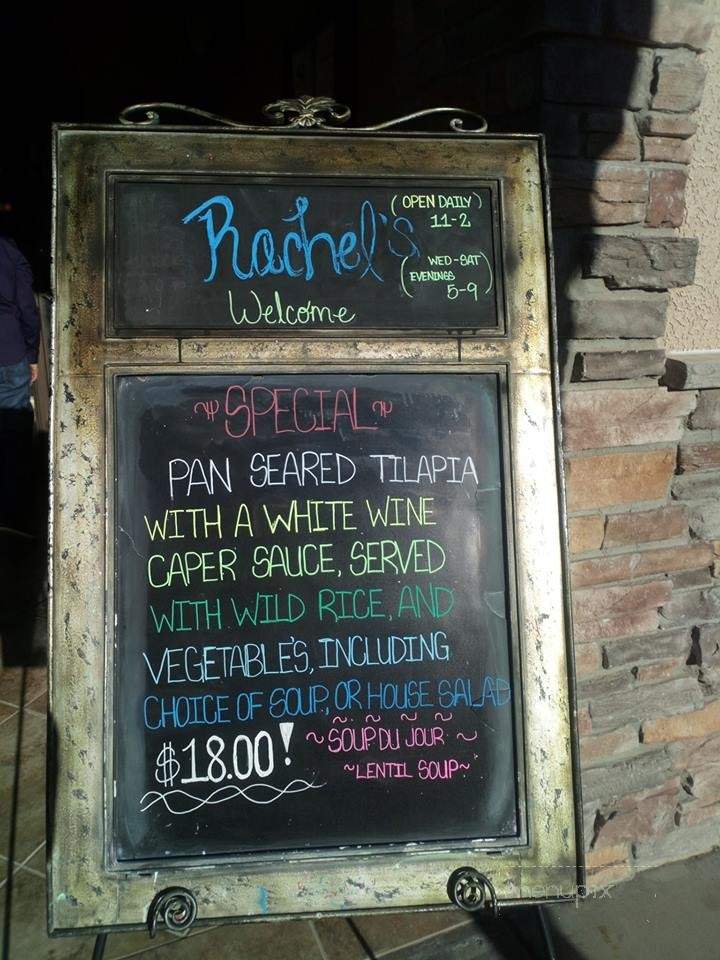 Rachel's
(OPEN DAILY)
11-2
(WED-SAT)
EVENINGS
5-9
Welcome
SPECIAL
PAN SEARED TILAPIA
WITH A WHITE WINE
CAPER SAUCE, SERVED
WITH WILD RICE, AND
VEGETABLE'S, INCLUDING
CHOICE OF SOUP, OR HOUSE SALAD
$18.00! ~SOUP DU JOUR~
~LENTIL SOUP~
menupix